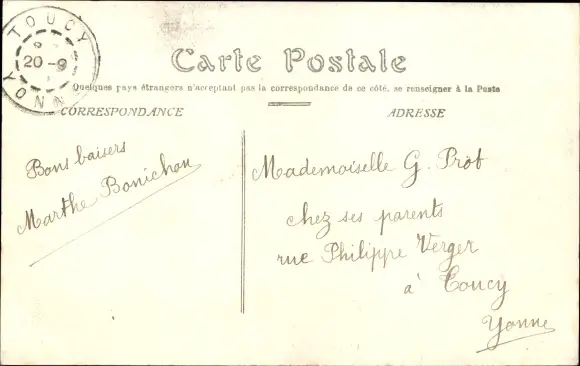 TOUCY
20-9
YONNE
Carte Postale
Quelques pays étrangers n'acceptant pas la correspondance de ce côté, se renseigner à la Poste
CORRESPONDANCE
ADRESSE
Bons baisers
Marthe Bonichon
Mademoiselle G. Prot
chez ses parents
rue Philippe Verger
à Toucy
Yonne